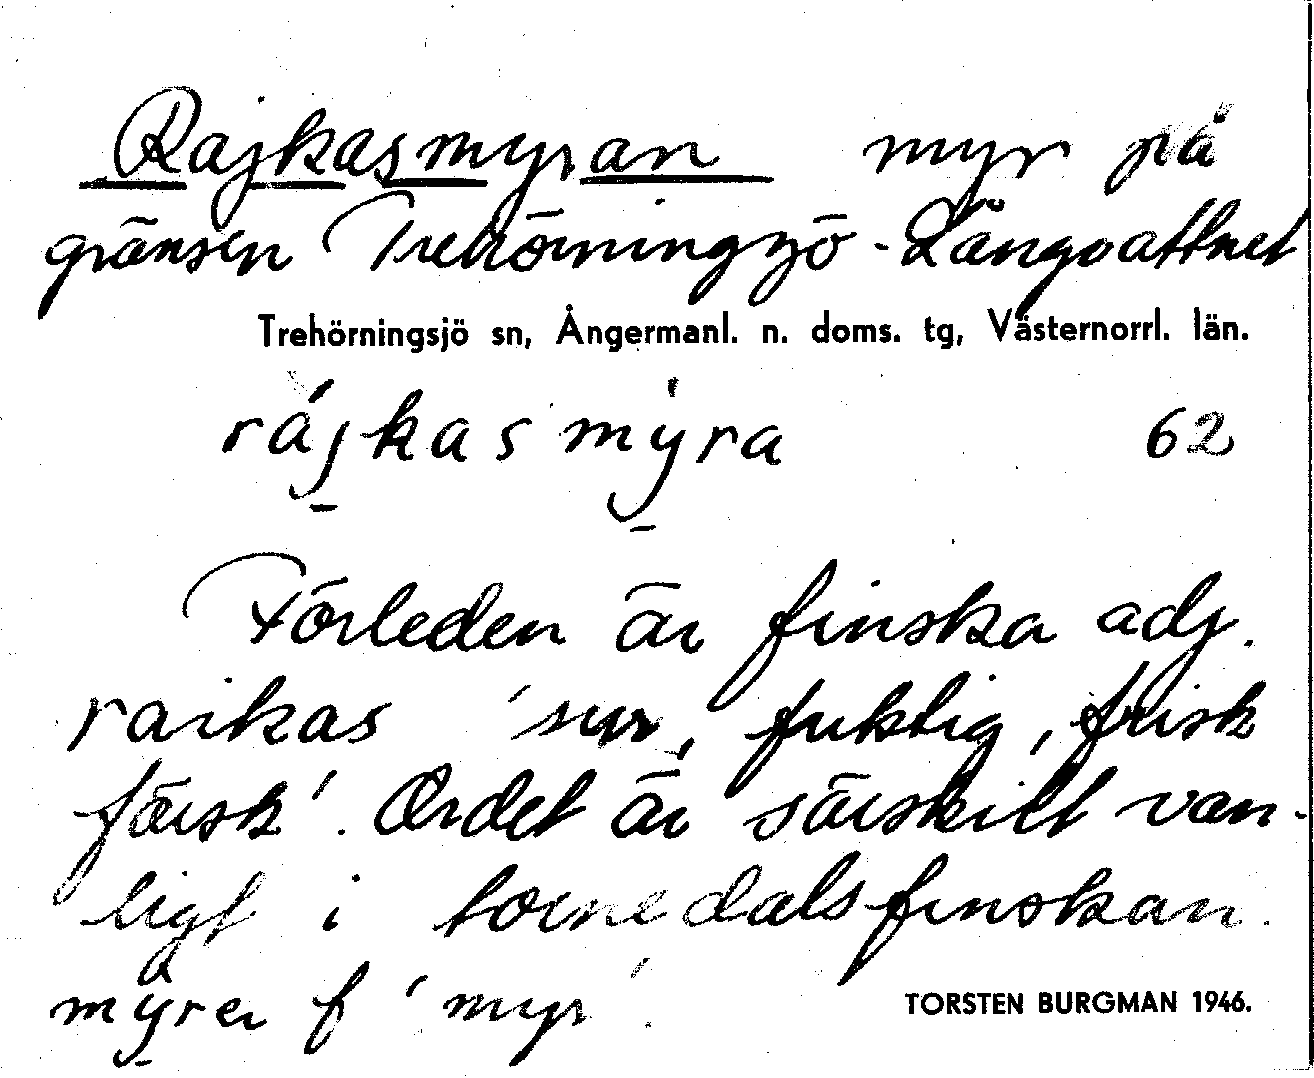 Rajkasmyran myr på
gränsen Trehörningsjö - Långvattnet
Trehörningsjö sn, Ångermanl. n. doms. tg, Västernorrl. län.
rájkasmýra 62
Förleden är finska adj.
raikas 'sur, fuktig, frisk
färsk'. Ordet är särskilt van-
ligt i tornedalsfinskan.
myrer f 'myr'.
TORSTEN BURGMAN 1946.